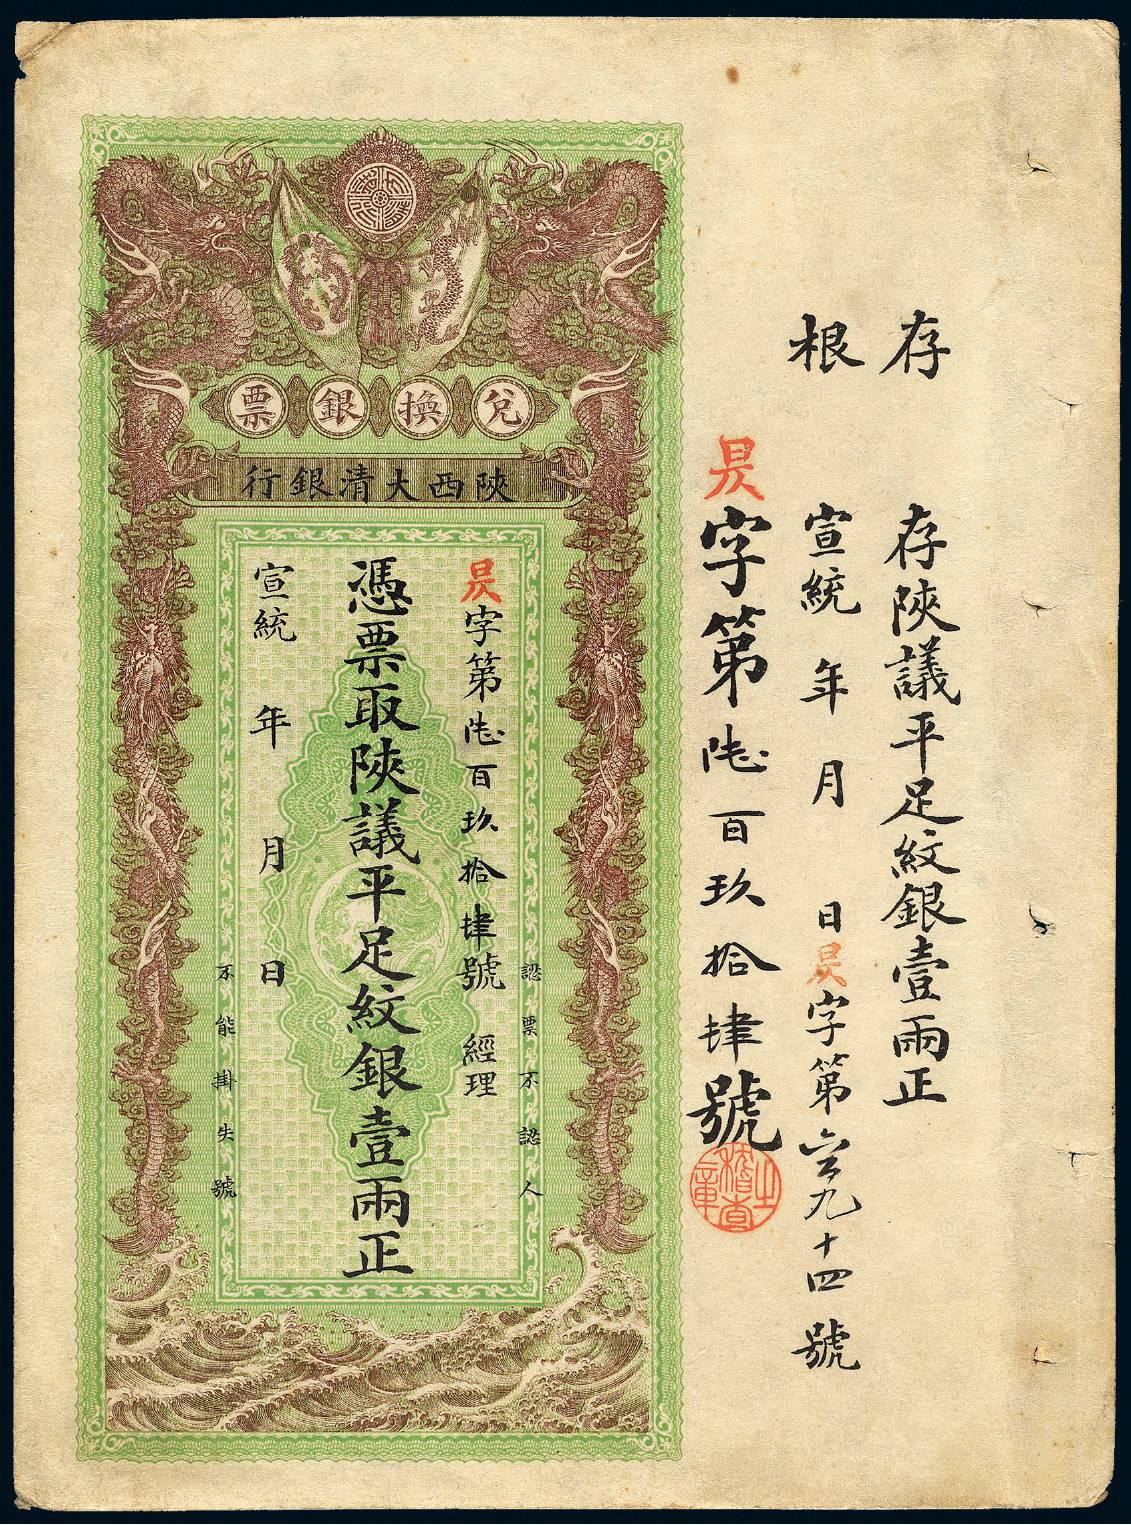 存根
存陝議平足紋銀壹兩正
宣統 年 月 日昃字第六百九十四號
昃字第陸百玖拾肆號
稽查之章
兌換銀票
陝西大清銀行
認票不認人
昃字第陸百玖拾肆號 經理
憑票取陝議平足紋銀壹兩正
宣統 年 月 日
不能掛失號